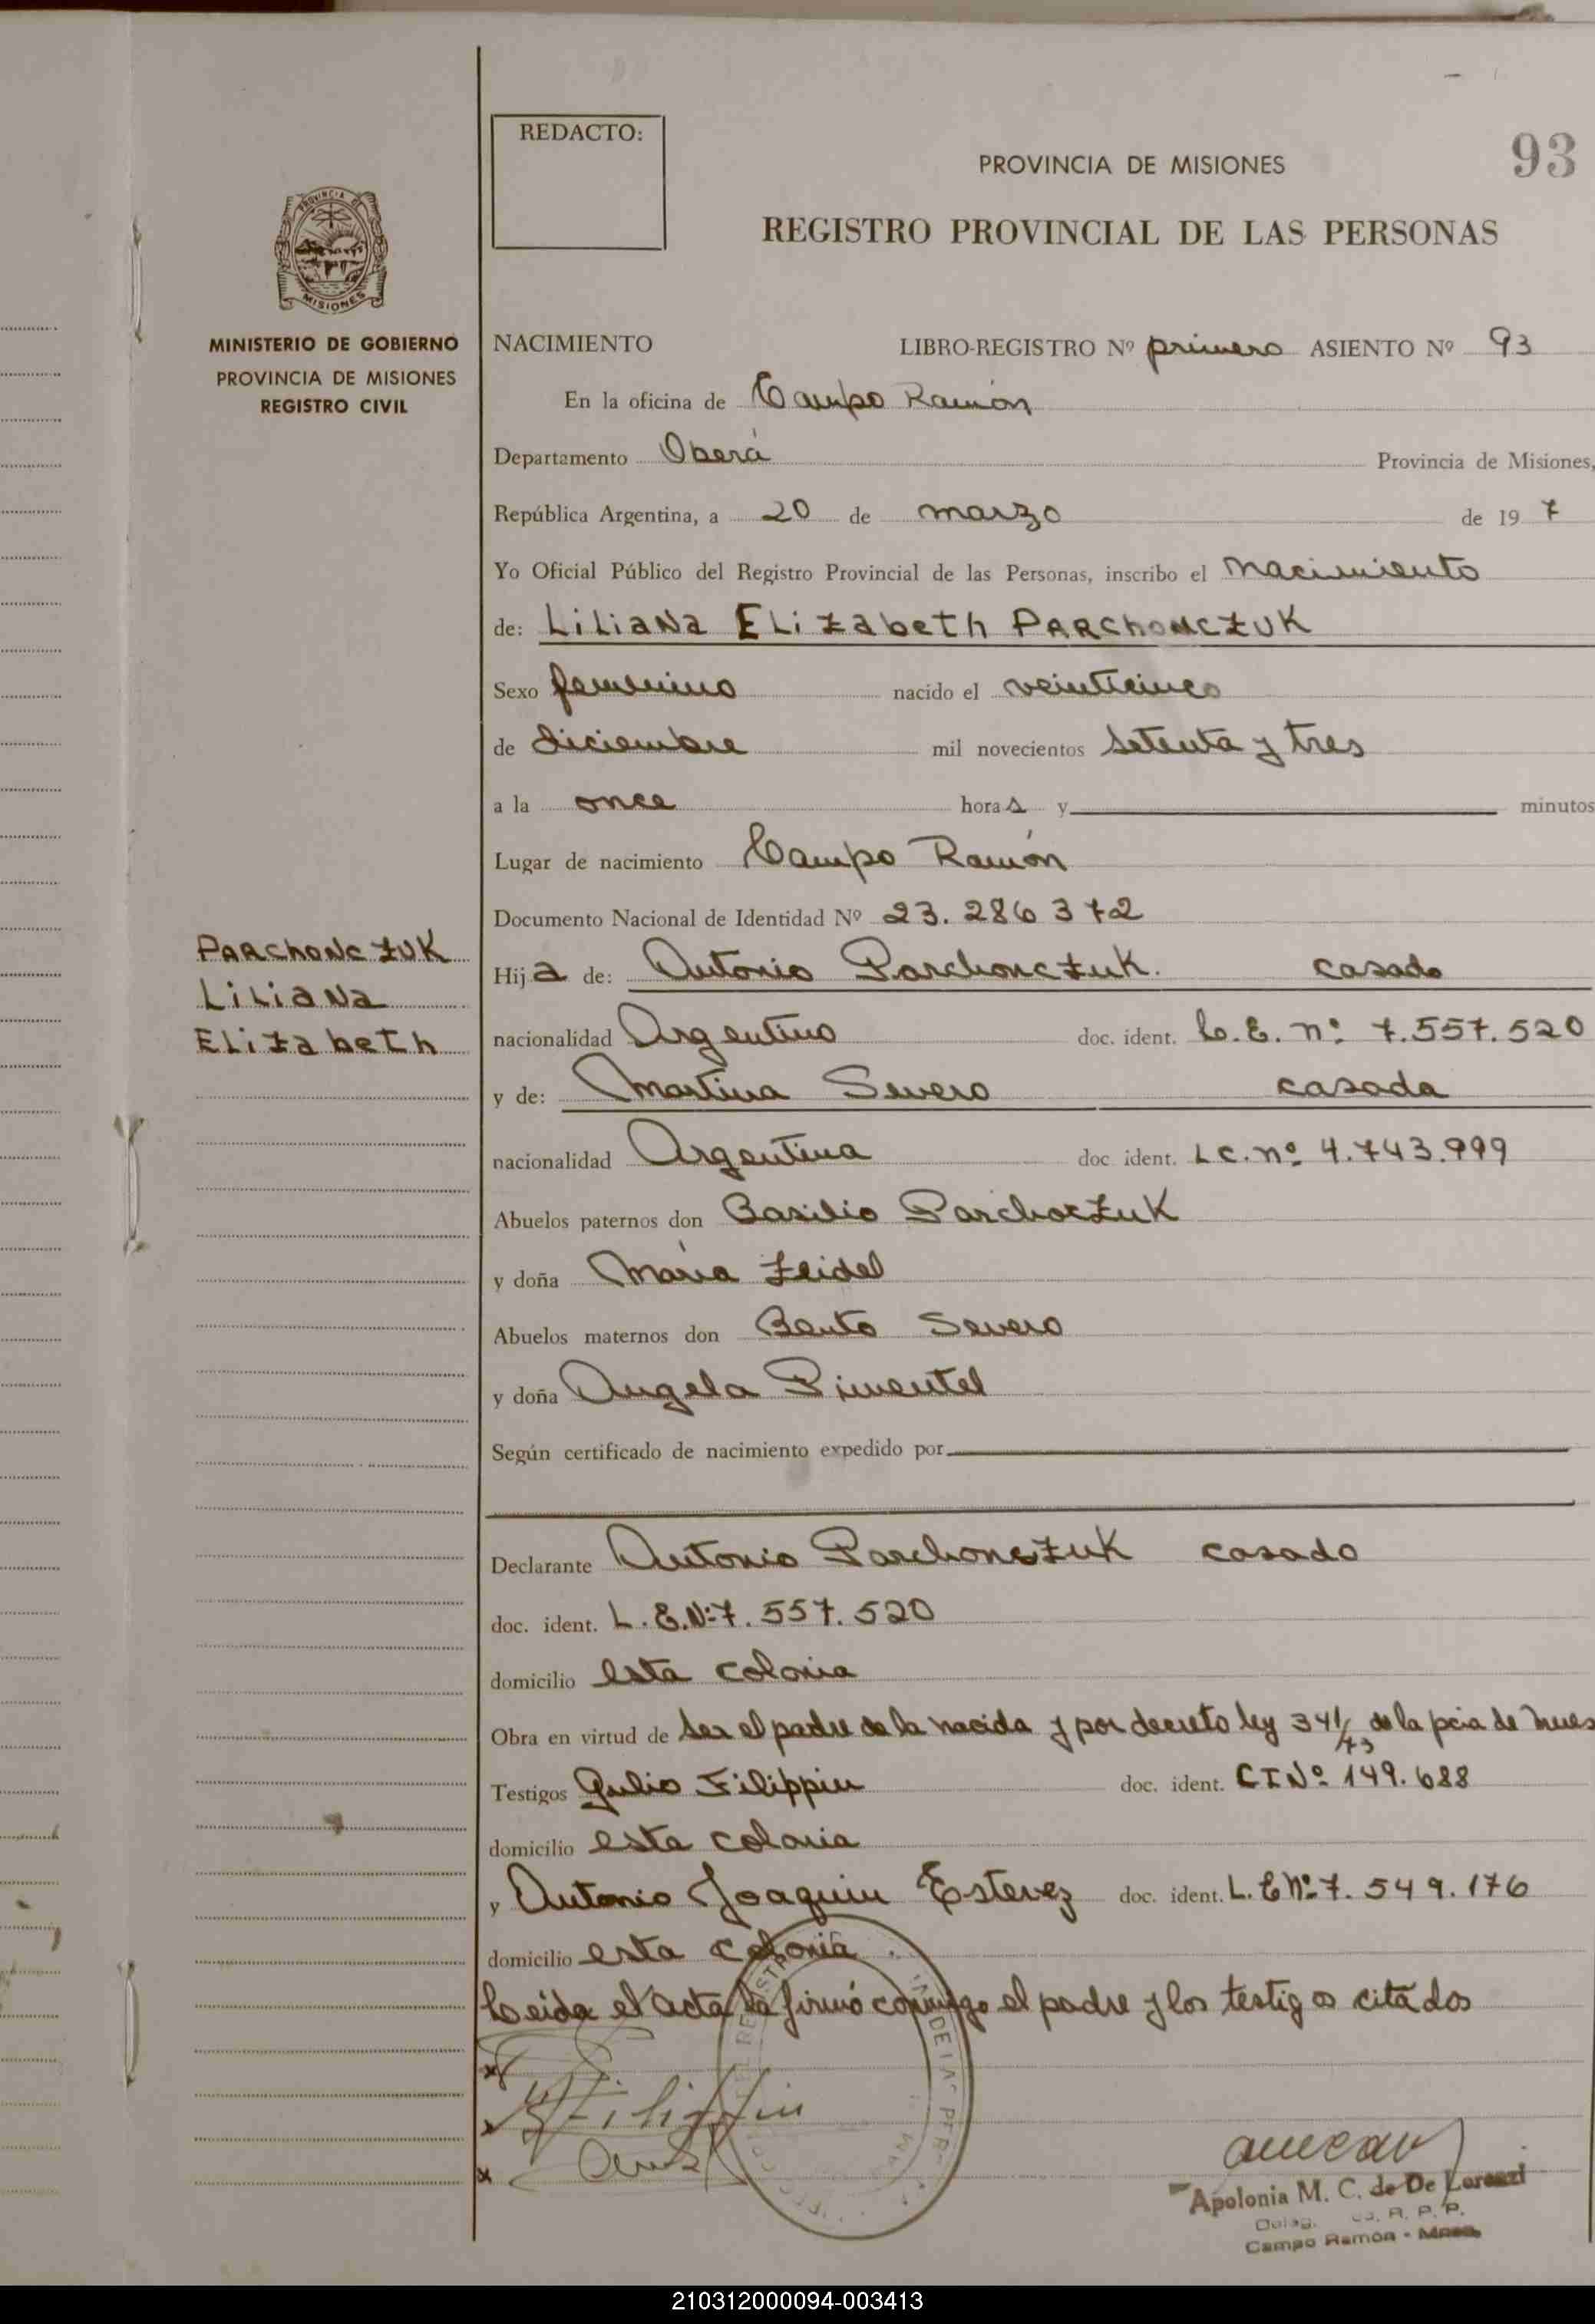 REDACTO:
93
PROVINCIA DE MISIONES
REGISTRO PROVINCIAL DE LAS PERSONAS
PROVINCIA DE
MISIONES
MINISTERIO DE GOBIERNO
PROVINCIA DE MISIONES
REGISTRO CIVIL
NACIMIENTO LIBRO-REGISTRO Nº primero ASIENTO Nº 93
En la oficina de Campo Ramón
Departamento Oberá Provincia de Misiones,
República Argentina, a 20 de marzo de 19 7
Yo Oficial Público del Registro Provincial de las Personas, inscribo el Nacimiento
de: Liliana Elizabeth PARChonczuk
Sexo femenino nacido el veinticinco
de diciembre mil novecientos setenta y tres
a la once horas y minutos
Lugar de nacimiento Campo Ramón
Documento Nacional de Identidad Nº 23.286 372
Hija de: Antonio Parchonczuk. casado
nacionalidad Argentino doc. ident. L.E. nº 7.557.520
y de: Martina Severo casada
nacionalidad Argentina doc ident. L C. nº 4.743.999
Abuelos paternos don Basilio Parchoczuk
y doña María Zeidel
Abuelos maternos don Bento Severo
y doña Angela Pimentel
Según certificado de nacimiento expedido por
PARChonczuk
Liliana
Elizabeth
Declarante Antonio Parchonczuk casado
doc. ident. L.E.Nº 7.557.520
domicilio esta colonia
Obra en virtud de ser el padre de la nacida y por decreto ley 341/73 de la pcia de Mnes
Testigos Julio Filippin doc. ident. C I Nº 149.688
domicilio esta colonia
y Antonio Joaquin Estevez doc. ident. L.E Nº 7.549.176
domicilio esta colonia.
Leida el acta la firmó conmigo el padre y los testigos citados
Filippin
Apolonia M. C. de De Lorenzi
R. P. P.
Campo Ramón - Mnes.
210312000094-003413